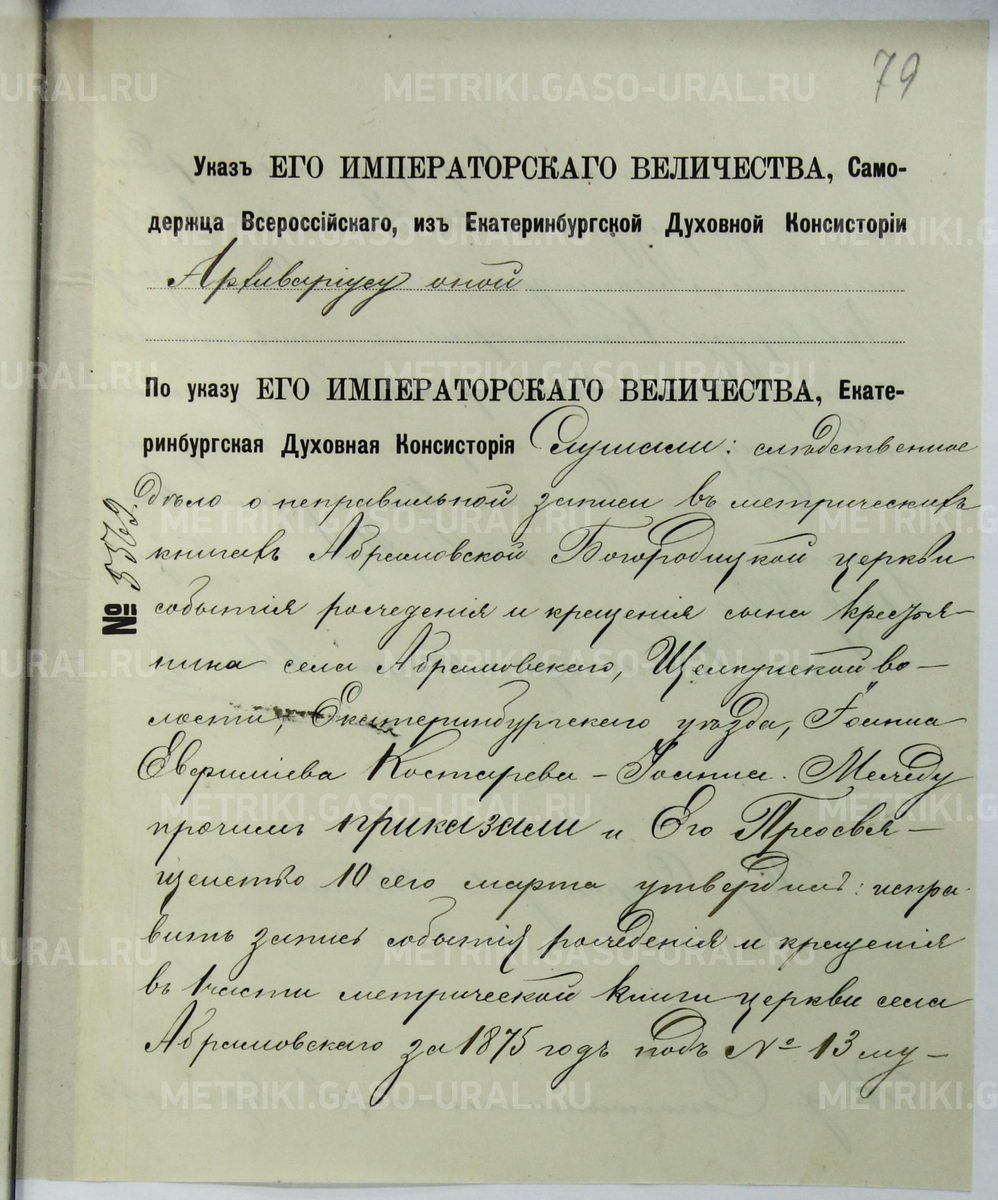 79
Указъ ЕГО ИМПЕРАТОРСКАГО ВЕЛИЧЕСТВА, Само-
держца Всероссійскаго, изъ Екатеринбургской Духовной Консисторіи
Архиваріусу оной
По указу ЕГО ИМПЕРАТОРСКАГО ВЕЛИЧЕСТВА, Екате-
ринбургская Духовная Консисторія Слушали: слѣдственное
дѣло о неправильной записи въ метрическихъ
книгахъ Абрамовской Богородицкой церкви
событія рожденія и крещенія сына кресть я-
нина села Абрамовскаго, Щелкунской во-
лости, Екатеринбургскаго уѣзда, Іоанна
Евфиміева Костарева - Іоанна. Между
прочимъ приказали и Его Преосвя-
щенство 10 сего марта утвердилъ: испра-
вить запись событія рожденія и крещенія
въ 1 части метрической книги церкви села
Абрамовскаго за 1875 годъ подъ № 13 му-
№
METRIKI.GASO-URAL.RU